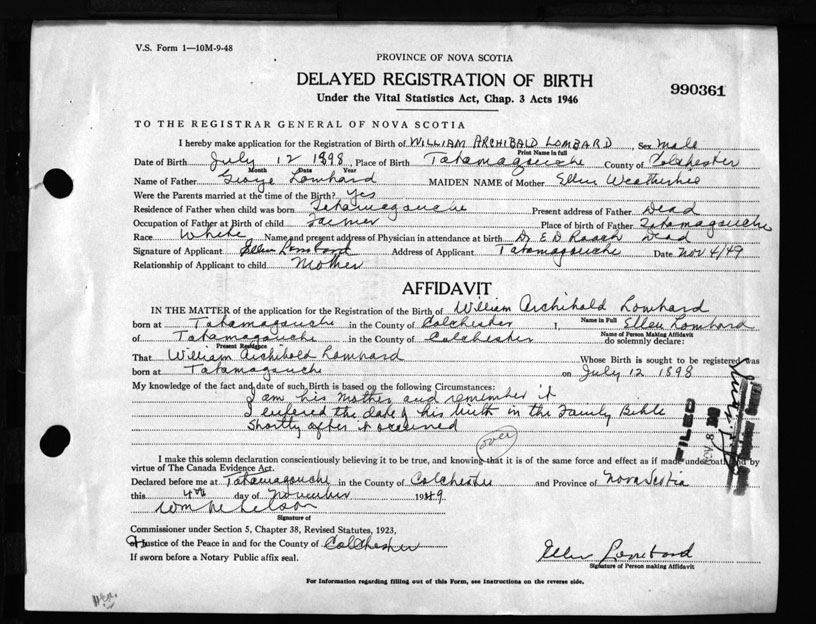 V.S. Form 1—10M-9-48
PROVINCE OF NOVA SCOTIA
DELAYED REGISTRATION OF BIRTH
990361
Under the Vital Statistics Act, Chap. 3 Acts 1946
TO THE REGISTRAR GENERAL OF NOVA SCOTIA
I hereby make application for the Registration of Birth of WILLIAM ARCHIBALD LOMBARD, Sex male
Print Name in full
Date of Birth July 12 1898, Place of Birth Tatamagouche County of Colchester
Month Date Year
Name of Father George Lombard MAIDEN NAME of Mother Ellen Weatherbee
Were the Parents married at the time of the Birth? Yes
Residence of Father when child was born Tatamagouche Present address of Father Dead
Occupation of Father at Birth of child Farmer Place of birth of Father Tatamagouche
Race White Name and present address of Physician in attendance at birth Dr E.D. Roach Dead
Signature of Applicant Ellen Lombard Address of Applicant Tatamagouche Date Nov 4/49
Relationship of Applicant to child Mother
AFFIDAVIT
IN THE MATTER of the application for the Registration of the Birth of William Archibald Lombard
Name in Full
born at Tatamagouche in the County of Colchester I, Ellen Lombard
Name of Person Making Affidavit
of Tatamagouche in the County of Colchester do solemnly declare:
Present Residence
That William Archibald Lombard Whose Birth is sought to be registered was
born at Tatamagouche on July 12 1898
My knowledge of the fact and date of such Birth is based on the following Circumstances:
I am his mother and remember it
I entered the date of his birth in the Family Bible
shortly after it occurred
over
FILED
NOV 8
I make this solemn declaration conscientiously believing it to be true, and knowing that it is of the same force and effect as if made under oath and by
virtue of The Canada Evidence Act.
Declared before me at Tatamagouche in the County of Colchester and Province of Nova Scotia
this 4th day of November 1949
Signature of
Commissioner under Section 5, Chapter 38, Revised Statutes, 1923,
or Justice of the Peace in and for the County of Colchester
If sworn before a Notary Public affix seal.
Ellen Lombard
Signature of Person making Affidavit
For Information regarding filling out of this Form, see Instructions on the reverse side.